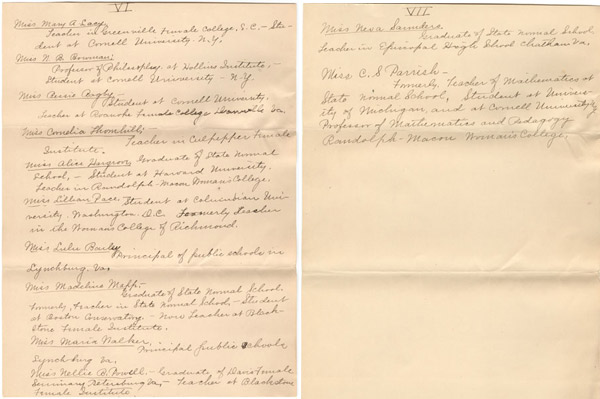 VI
Miss Mary A Lacy,
Teacher in Greenville Female College, S.C. – Stu-
dent at Cornell University – N.Y.
Miss N. B. Bowman:
Professor of Philosophy at Hollins Institute, –
Student at Cornell University – N.Y.
Miss
Student at Cornell University.
Teacher at Roanoke Female College Danville Va.
Miss Cornelia Thornhill:
Teacher in Culpepper Female
Institute.
Miss Alice Graduate of State Normal
School, – Student at Harvard University.
Teacher in Randolph-Macon Woman's College.
Miss Lillian Pace, Student at Columbian Uni-
versity. Washington. D.C. Formerly Teacher
in the Womans College of Richmond.
Miss Lulu Bailey
Principal of public schools in
Lynchburg. Va.
Miss Madelius Mapp. –
Graduate of State Normal School.
Formerly, teacher in State Normal School – Student
at Boston Conservatory – Now Teacher at Black-
stone Female Institute.
Miss Maria Walker,
Principal public schools
Lynchburg Va.
Miss Nellie B. Powell. – Graduate of Davis Female
Seminary Petersburg Va, – Teacher at Blackstone
Female Institute
VII
Miss Neva Saunders,
Graduate of State Normal School
Teacher in Episcopal High School Chatham Va.
Miss C. S Parrish –
Formerly, Teacher of Mathematics at
State Normal School, Student at Univer-
ity of Michigan, and at Cornell University,
Professor of Mathematics and Pedagogy
Randolph-Macon Woman's College,